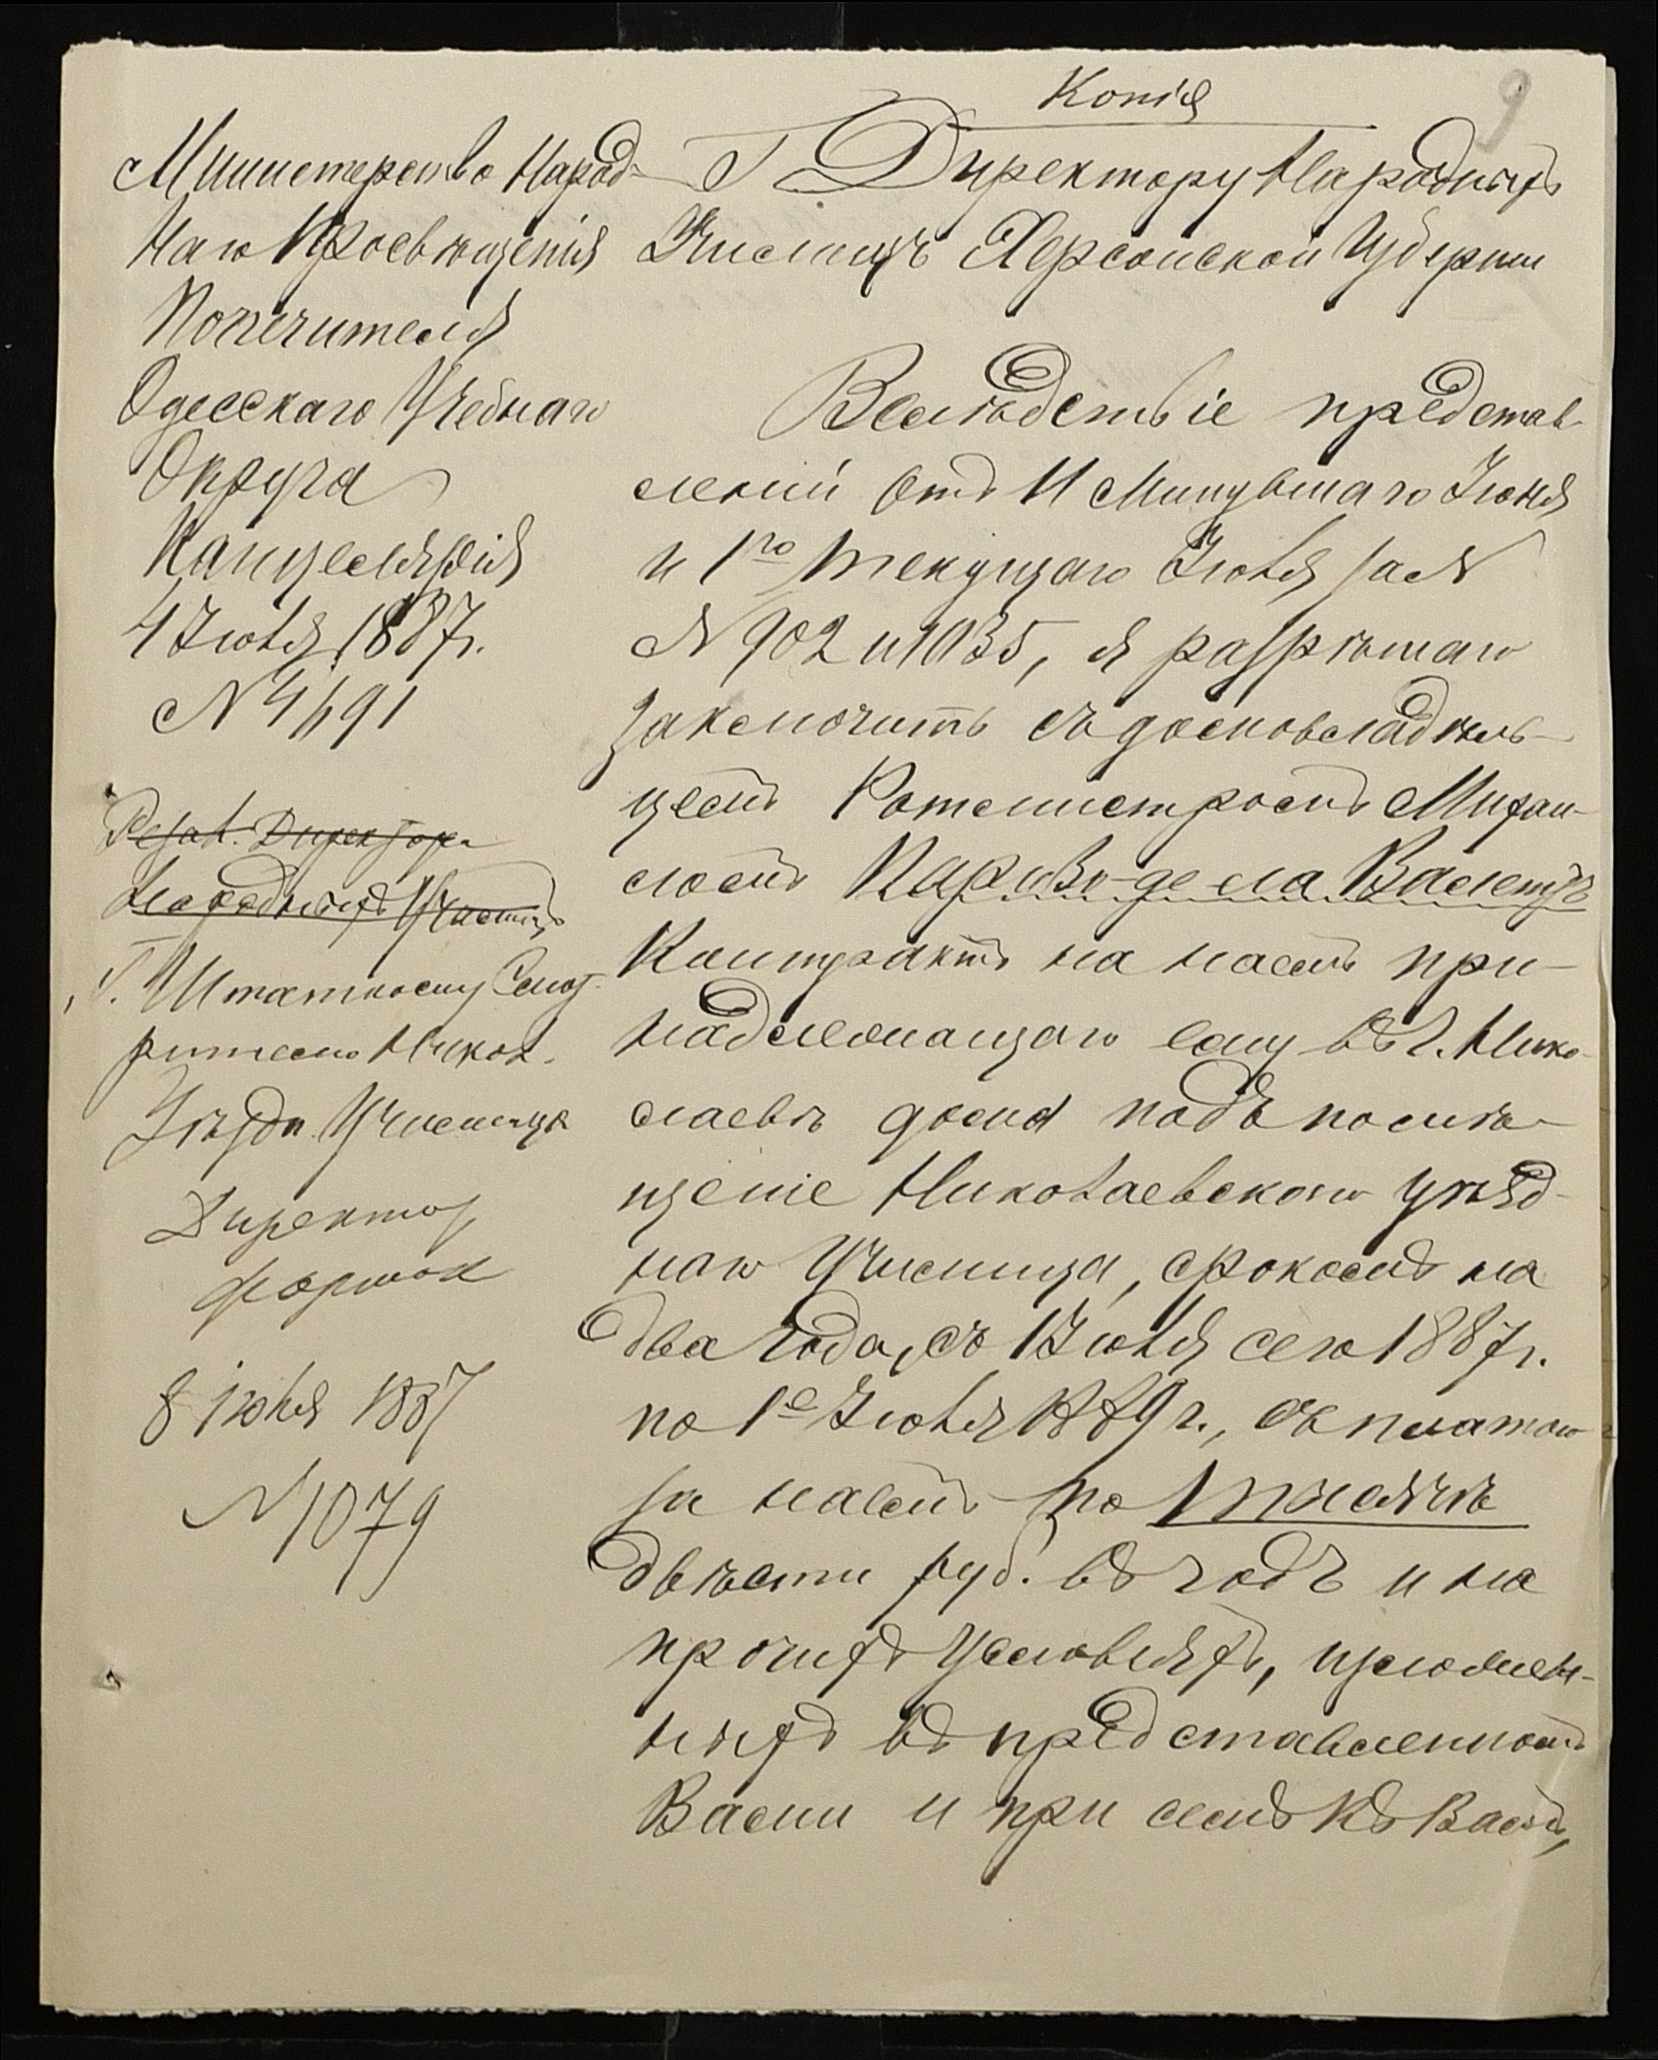 Копія
9
Министерство Народ-
наго Просвѣщенія
Попечителя
Одесскаго Учебнаго
Округа
Канцелярія
4 Іюля 1887г.
N 4691
Резол. Директора
Народныхъ Училищъ
Г. Штатному Смот-
рителю Никол.
Уѣздн. Училища
Директор
8 іюля 1887
N 1079
Г Директору Народныхъ
Училищъ Херсонской Губерніи
Вслѣдствіе представ-
леній отъ 11 Минувшаго Іюня
и 1го текущаго Іюля за N
N 902 и 1035, я разрѣшаю
заключить съ домовладѣль-
цемъ Ротмистромъ Михаи-
ломъ Кариво-де ла Валетъ
Контрактъ на наемъ при-
надлежащаго ему въ г. Нико-
лаевѣ дома подъ помѣ-
щеніе Николаевскаго уѣзд-
наго Училища, срокомъ на
два года, съ 1 Іюля сего 1887г.
по 1е Іюля 1889 г., съ платою
за наемъ по тысячѣ
двѣсти руб. въ годъ и на
прочихъ условіяхъ, изложен-
ныхъ въ представленномъ
Вами и при семъ къ Вамъ,